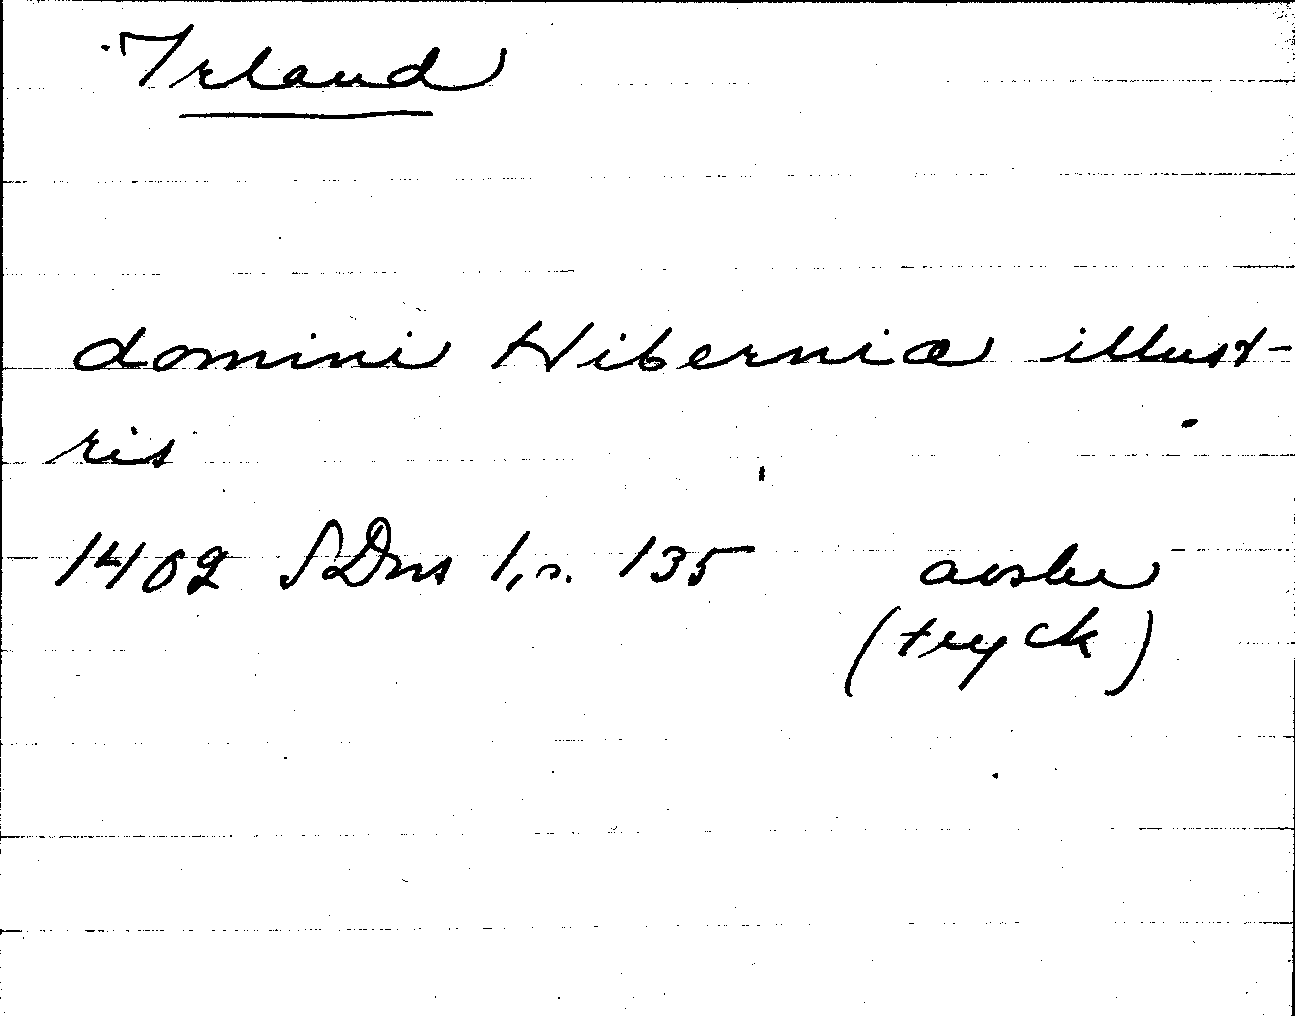 Irland
domini Hiberniæ illust-
ris
1402 SDns 1, s. 135 avskr
(tryck)